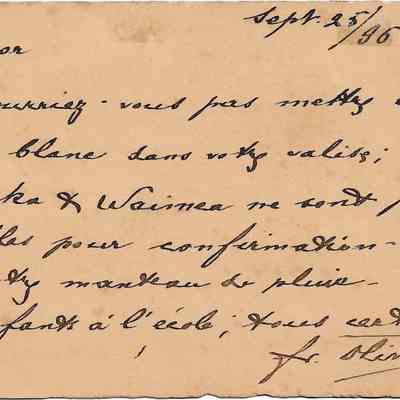 Sept. 25/96
or
ourriez-vous pas mettre
blanc dans votre valise;
ka & Waimea ne sont
las pour confirmation-
tre manteau de pluie-
fants à l'école; tous cert
fr. Olin